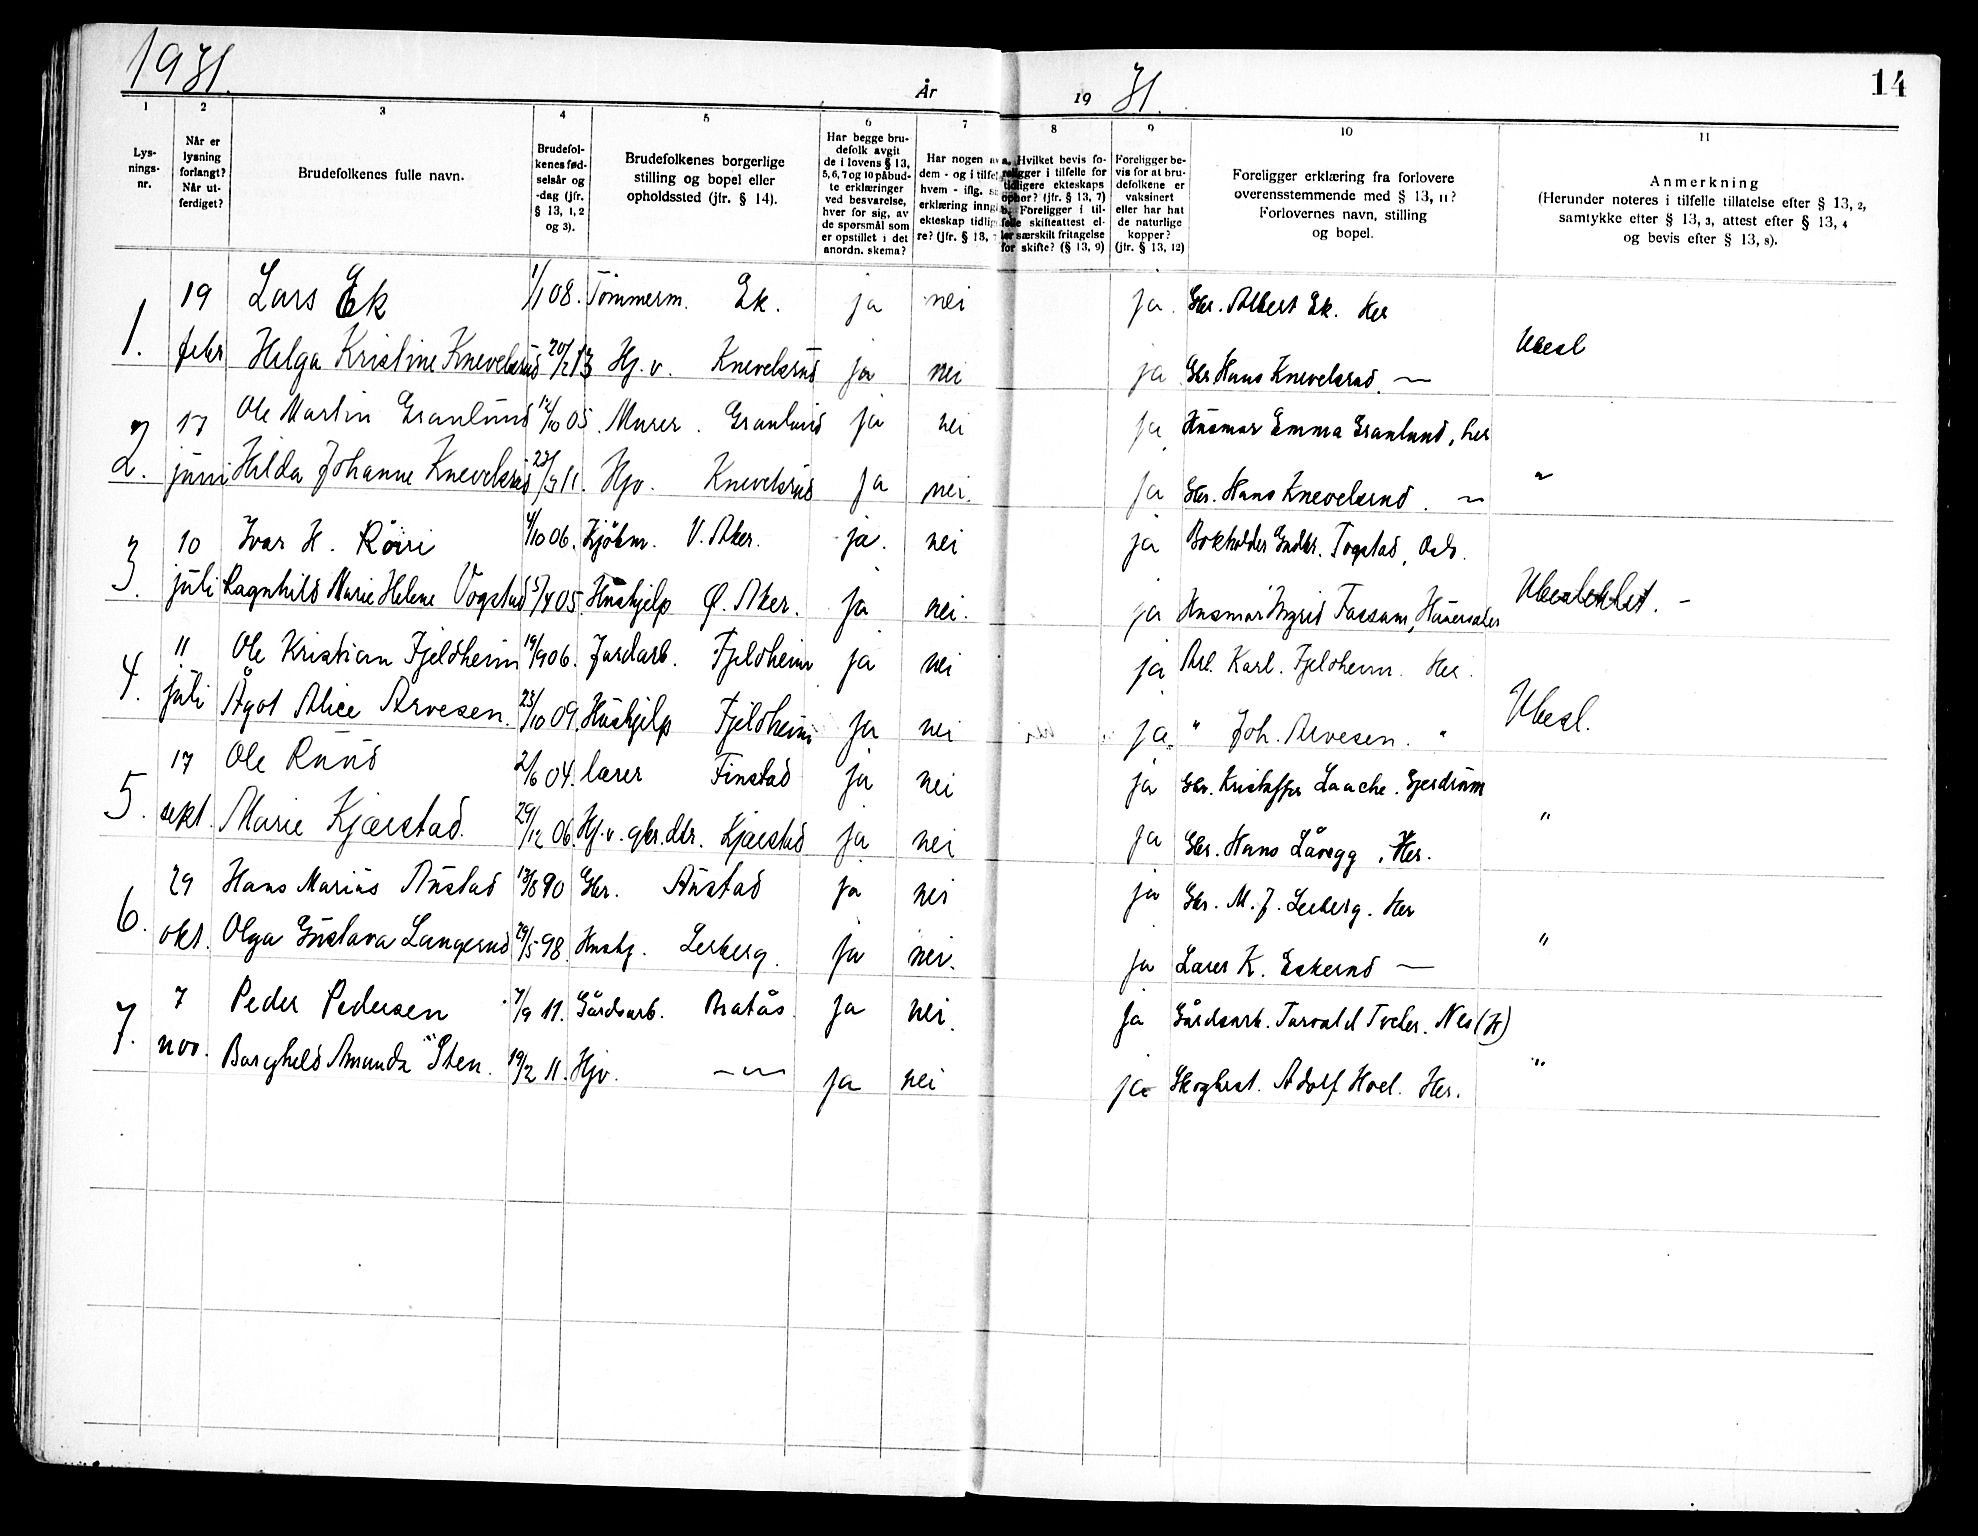 1931.
År
19 31.
14
1 2 3 4 5 6 7 8 9 10 11
Lysningsnr.
Når er lysning forlangt? Når utferdiget?
Brudefolkenes fulle navn.
Brudefolkenes fødselsår og -dag (jfr. § 13, 1, 2 og 3).
Brudefolkenes borgerlige stilling og bopel eller opholdssted (jfr. § 14).
Har begge brudefolk avgit de i lovens § 13, 5, 6, 7 og 10 påbudte erklæringer ved besvarelse, hver for sig, av de spørsmål som er opstillet i det anordn. skema?
Har nogen av dem - og i tilfelle hvem - iflg. erklæring inngått ekteskap tidligere? (jfr. § 13,
a. Hvilket bevis foreligger i tilfelle for tidligere ekteskaps ophør? (jfr. § 13, 7) b. Foreligger i tilfelle skifteattest eller særskilt fritagelse for skifte? (§ 13, 9)
Foreligger bevis for at brudefolkene er vaksinert eller har hat de naturlige kopper? (jfr. § 13, 12)
Foreligger erklæring fra forlovere overensstemmende med § 13, 11? Forlovernes navn, stilling og bopel.
Anmerkning (Herunder noteres i tilfelle tillatelse efter § 13, 2, samtykke efter § 13, 3, attest efter § 13, 4 og bevis efter § 13, 8).
1. 19 Lars Ek 1/1 08. Tömmerm. Ek. ja nei ja. Gbr. Albert Ek. Her
febr Helga Kristine Knevelsrud 20/2 13 Hj. v. Knevelsrud ja nei ja Gbr Hans Knevelsrud. — Ubesl
2. 17 Ole Martin Granlund 12/10 05. Murer. Granlund ja nei ja Husmor Emma Granlund, her
juni Hilda Johanne Knevelsrud 23/3 11. Hjv. Knevelsrud ja nei. ja Gbr. Hans Knevelsrud. — "
3. 10 Ivar H. Röiri 4/10 06. Kjökm. V. Aker. ja. nei ja Bokholder Togstad, Oslo.
juli Ragnhild Marie Helene Vogstad 5/4 05. Hushjelp Ø. Aker. ja nei. ja Husmor Ingrid Ubeslektet. —
4. 11 Ole Kristian Fjeldheim 19/9 06. Jordarb. Fjeldheim ja nei ja Arb. Karl. Fjeldheim. Her.
juli Ågot Alice Arvesen. 23/10 09. Hushjelp Fjeldheim ja nei ja. " Joh. Arvesen. " Ubesl.
5. 17 Ole Ruud 2/6 04. lærer Finstad ja nei ja Gbr. Kristoffer Laache. Gjerdrum
sept. Marie Kjærstad. 29/12 06. Hj. v. gbr. dtr. Kjærstad ja nei ja Gbr. Hans Låvegg, Her. "
6. 29 Hans Marius Austad 13/8 90 Gbr. Austad ja nei ja Gbr. M. J. Lerberg. Her
okt. Olga Gustava Langerud 29/5 98. Hushj. Lerberg. ja nei. ja Lærer K. Eskerud — "
7. 7 Peder Pedersen 7/9 11. Gårdsarb. Bratås. ja nei. ja Gårdsarb. Torvald Tveter. Nes (H)
nov. Borghild Amunda Sten. 19/2 11. Hjv. — " — ja nei ja Skogbest. Adolf Hoel. Her. "